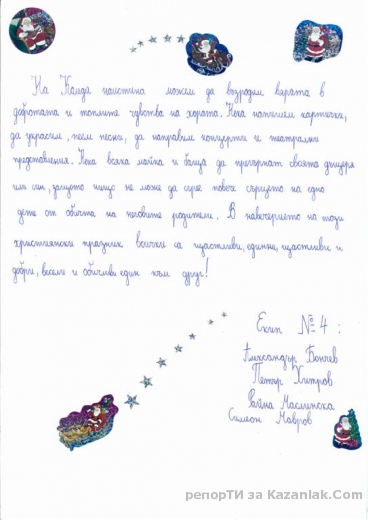 На Коледа наистина можем да възродим вярата в
добротата и топлите чувства на хората. Нека напишем картички,
да украсим, пеем песни, да направим концерти и театрални
представления. Нека всяка майка и баща да прегърнат своята дъщеря
или син, защото нищо не може да сгрее повече сърцето на едно
дете от обичта на неговите родители. В навечерието на този
християнски праздник всички са щастливи, единни, щастливи и
добри, весели и обичливи един към друг!
Екип № 4:
Александър Бончев
Петър Хитров
Райна Маслинска
Симеон Мавров
репорТИ за Kazanlak.Com